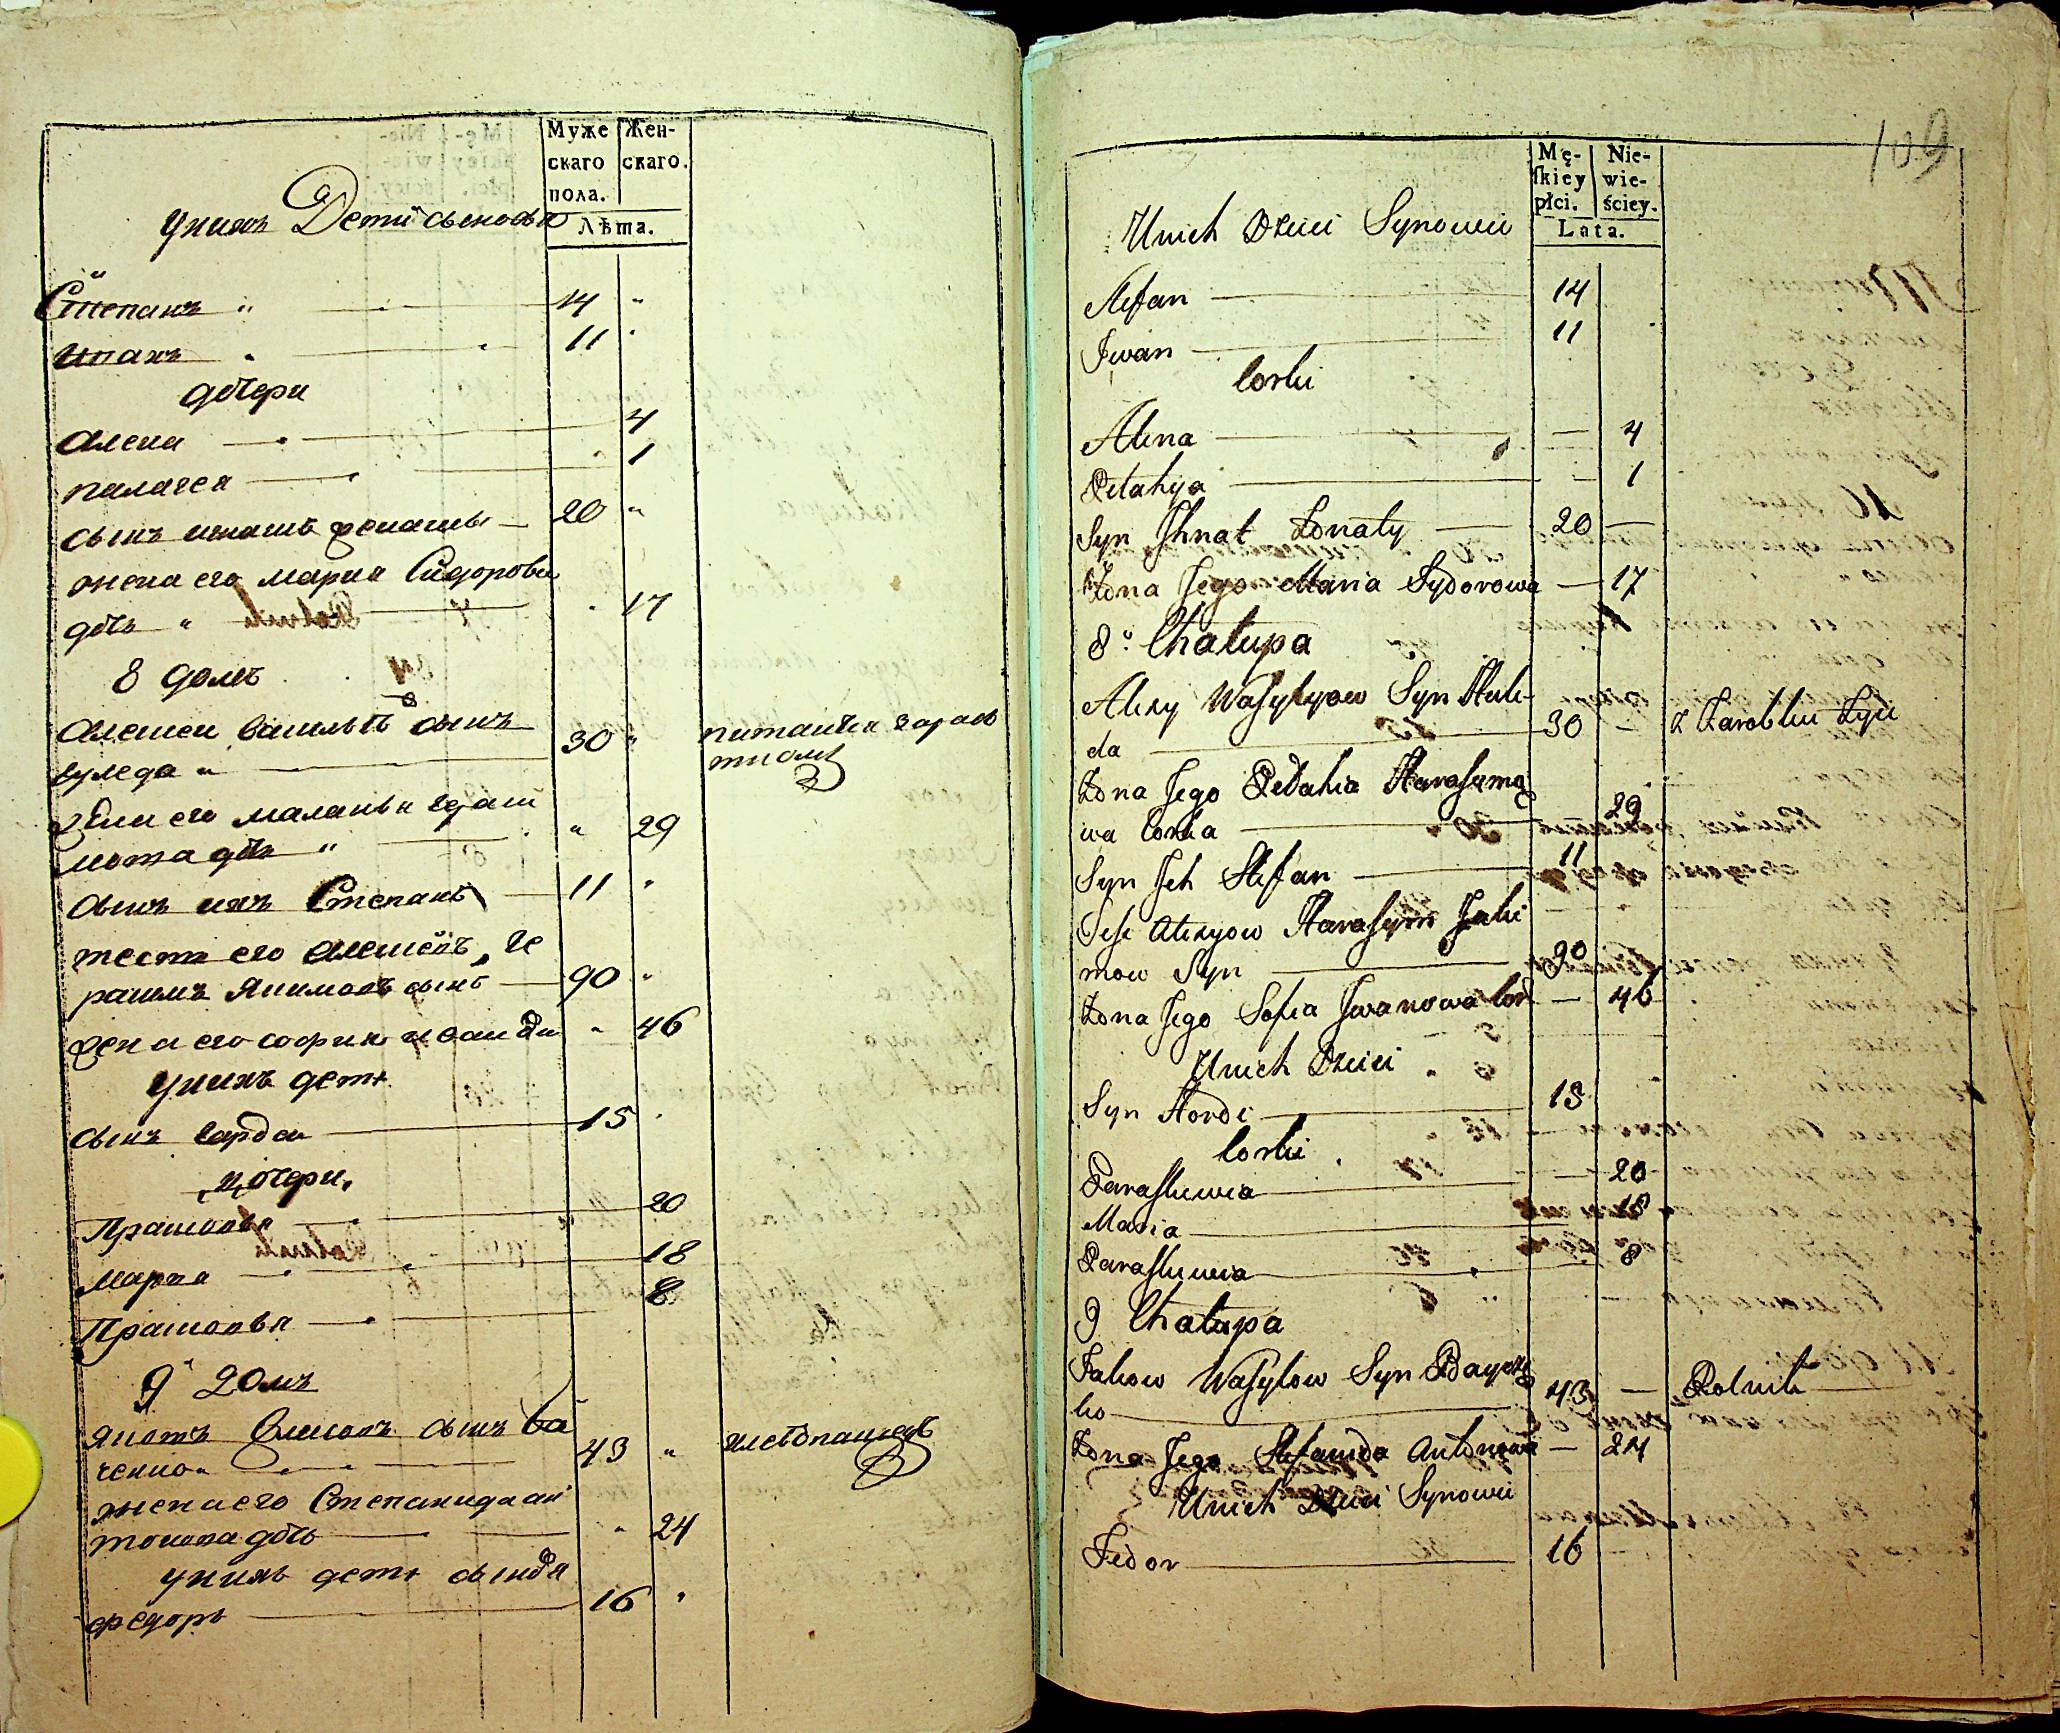 Муже
скаго
пола.
Жен-
скаго.
Лѣта.
уних Дети сыновья
Степанъ 14
Иванъ 11
дочери
Алена 4
палагея 1
сынъ игнатъ женаты 20
жена его мария Сидорова
дочь 17
8 домъ
Алексеи василевъ сынъ
гуледа 30
питаится зарабо
тком
жена его маланья гараси
мова дочь 29
сынъ ихъ Степанъ 11
тесть его алексеевъ, Ге
расимъ якимовъ сынъ 90
жена его софия иван 46
унихъ дети
сынъ Гордеи 15
дочери
Прасковья 20
Мария 18
Прасковья 8
9 домъ
яковъ Василевъ сынъ ба
ченко 43
хлебопашецъ
жена его Степанида ан
тонова дочь 24
унихъ дети сыновья
федоръ 16
109
Mę-
skiey
płci.
Nie-
wie-
ściey.
Lata.
Unich Dzieci Synowei
Stefan 14
Jwan 11
Corki
Alena 4
Pelahya 1
Syn Jhnat Zonaty 20
Zona Jego Maria Sydorowa 17
8 Chalupa
Alexy Wasylyow Syn Hule-
da 30
z Zarobku Zyie
Zona Jego Pedahia Harasymo
wa Corka 29
Syn Jch Stefan 11
Test Alexyow Harasym Jaki
mow Syn 90
Zona Jego Sofia Jwanowa Cor 46
Unich Dzieci
Syn Hordi 15
Corki
Paraskiewia 20
Maria 18
Paraskiewia 8
9 Chalupa
Jakow Wasylow Syn Bayczę
ko 43
Rolnik
Zona Jego Stefanida Antonowa 24
Unich Dzieci Synowei
Fedor 16